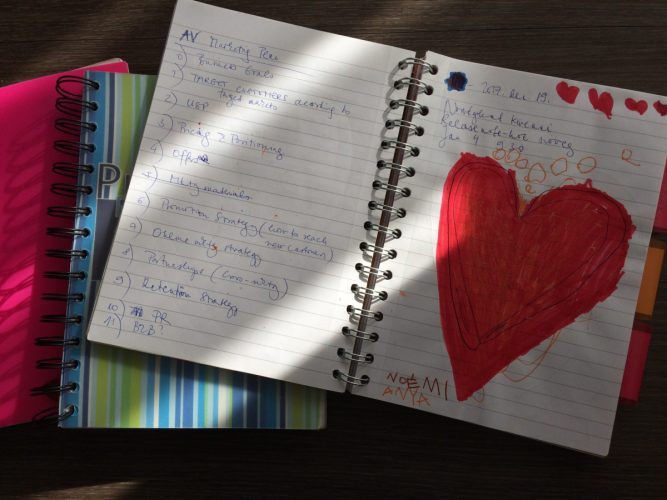 AV Marketing Plan
0) Business Goals
1) TARGET CUSTOMERS according to
target markets
2) USP
3) Pricing & Positioning
4) Offer
5) Mktg materials
6) Promotion Strategy (how to reach
new customers)
7) Online mktg strategy
8) Partnerships (cross-mktg)
9) Retention Strategy
10) PR
11) B2B?
P
2017. dec 19.
jan 4 9 30
NOÉMI
ANYA